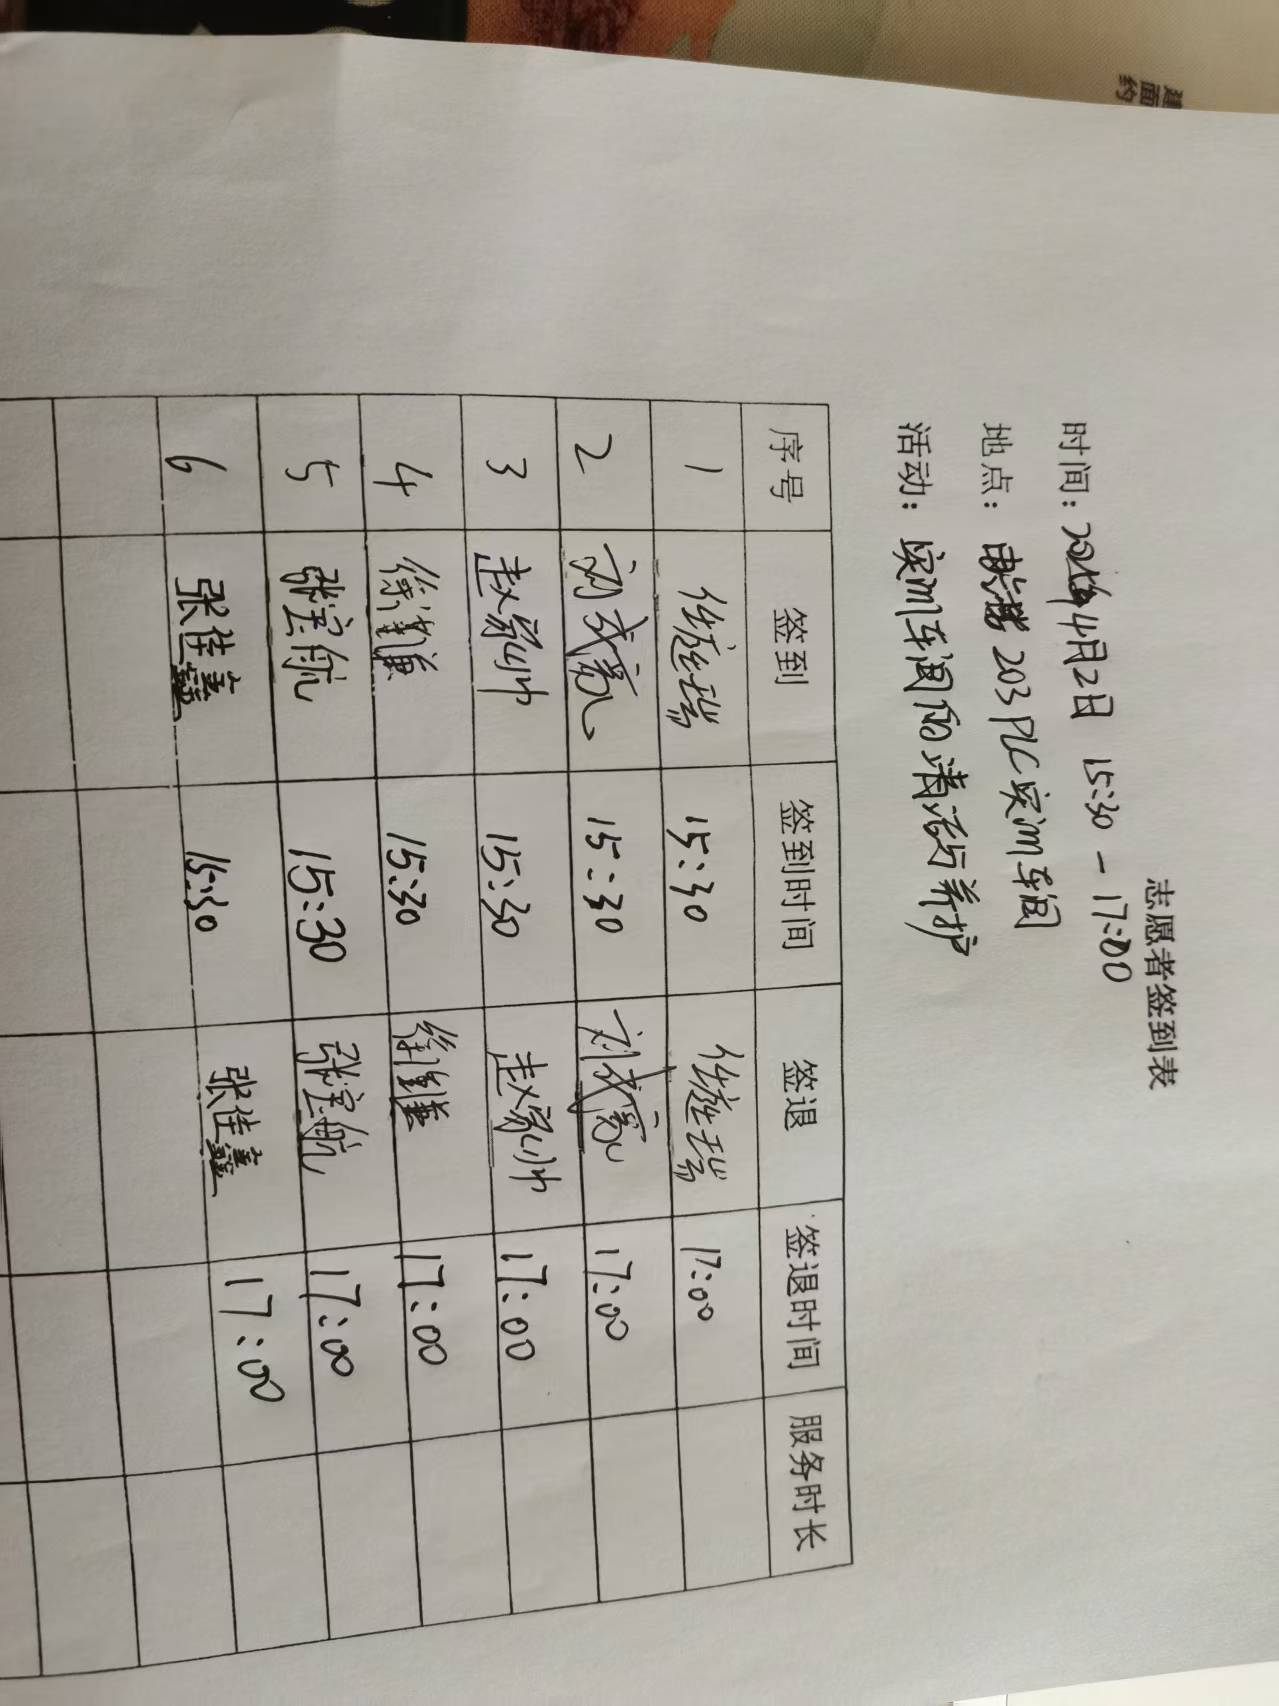 建面约
志愿者签到表
时间: 4月2日 15:30 - 17:00
地点: 203 PLC实训车间
活动: 实训车间的清洁与养护
序号 签到 签到时间 签退 签退时间 服务时长
1 任延瑞 15:30 任延瑞 17:00
2 15:30 17:00
3 赵家帅 15:30 赵家帅 17:00
4 15:30 17:00
5 张宝航 15:30 张宝航 17:00
6 张佳鑫 15:30 张佳鑫 17:00